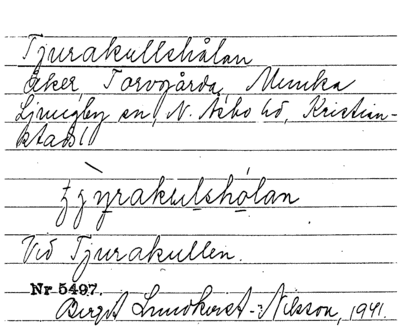 Tjurakullshålan
Åker, Torvgårda, Munka
Ljungby sn, N. Åsbo hd, Kristian-
stads l
ʒyrakulshólan
Vid Tjurakullen.
Nr 5497.
Birgit Lundkvist-Nilsson, 1941.